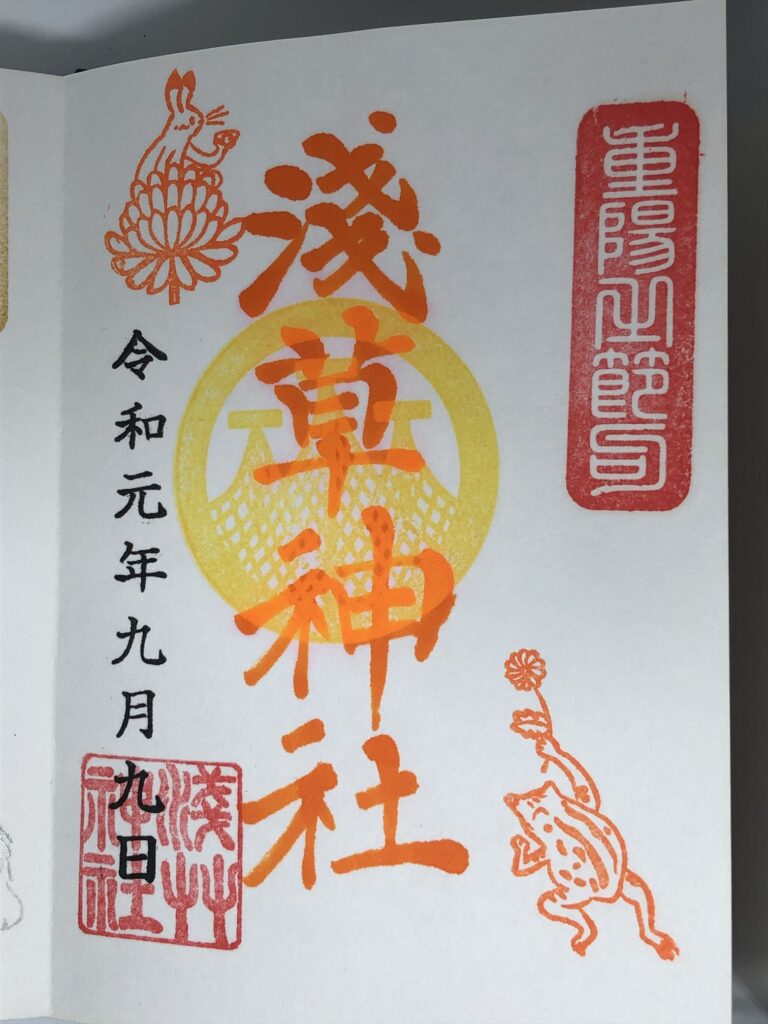 重陽之節句
淺草神社
令和元年九月九日
淺艸
神社